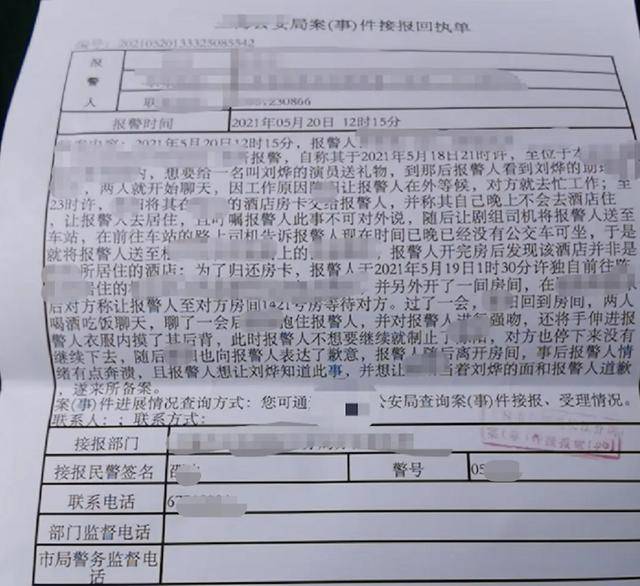 公安局案(事)件接报回执单
编号: 20210520133325085542
报
警
人 联 230866
报警时间 2021年05月20日 12时15分
内容: 2021年5月20日12时15分, 报警人
报警, 自称其于2021年5月18日21时许, 至位于
内, 想要给一名叫刘烨的演员送礼物, 到那后报警人看到刘烨的助
, 两人就开始聊天, 因工作原因 让报警人在外等候, 对方就去忙工作;至
23时许, 将其在 的酒店房卡交给报警人, 并称其自己晚上不会去酒店住
, 让报警人去居住, 且叮嘱报警人此事不可对外说, 随后让剧组司机将报警人送至
车站, 在前往车站的路上司机告诉报警人现在时间已晚已经没有公交车可坐, 于是
就将报警人送至 上的 , 报警人开完房后发现该酒店并非是
所居住的酒店;为了归还房卡, 报警人于2021年5月19日1时30分许独自前往
居住的 并另外开了一间房间, 在
后对方称让报警人至对方房间1421号房等待对方。过了一会, 阳回到房间, 两人
喝酒吃饭聊天, 聊了一会后 抱住报警人, 并对报警人进行强吻, 还将手伸进报
警人衣服内摸了其后背, 此时报警人不想要继续就制止了 , 对方也停下来没有
继续下去, 随后 也向报警人表达了歉意, 报警人随后离开房间, 事后报警人情
绪有点奔溃, 且报警人想让刘烨知道此事, 并想让 当着刘烨的面和报警人道歉
, 遂来所备案。
案(事)件进展情况查询方式: 您可通 公安局查询案(事)件接报、受理情况。
联系人: ; 联系方式:
接报部门
接报民警签名 警号 05
联系电话 67
部门监督电话
市局警务监督电
话